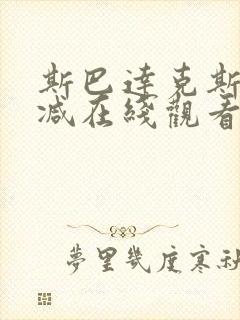 斯巴達克斯
减在綫觀看
夢里幾度寒秋